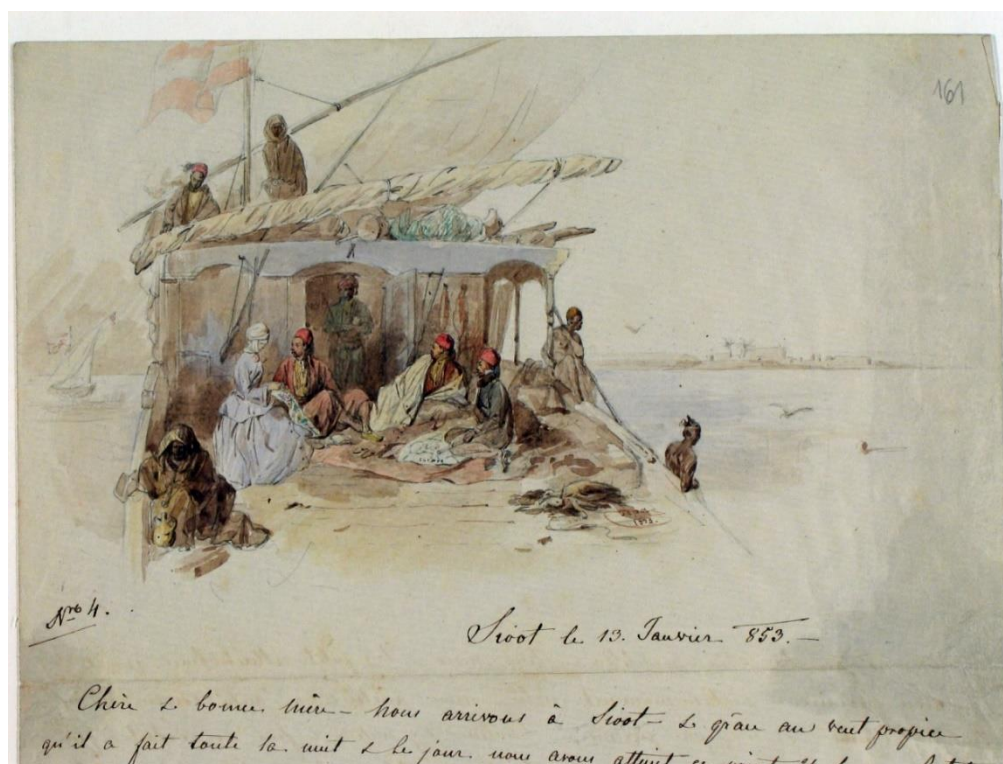 161
1853.
Nro 4.
Sioot le 13. Janvier 853.—
Chère & bonne mère — nous arrivons à Sioot — & grâce au vent propice
qu'il a fait toute la nuit & le jour nous avons atteint